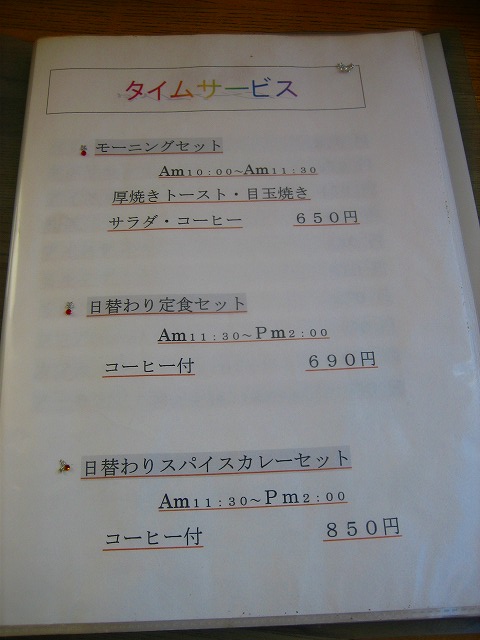 タイムサービス
モーニングセット
Am10:00~Am11:30
厚焼きトースト・目玉焼き
サラダ・コーヒー 650円
日替わり定食セット
Am11:30~Pm2:00
コーヒー付 690円
日替わりスパイスカレーセット
Am11:30~Pm2:00
コーヒー付 850円